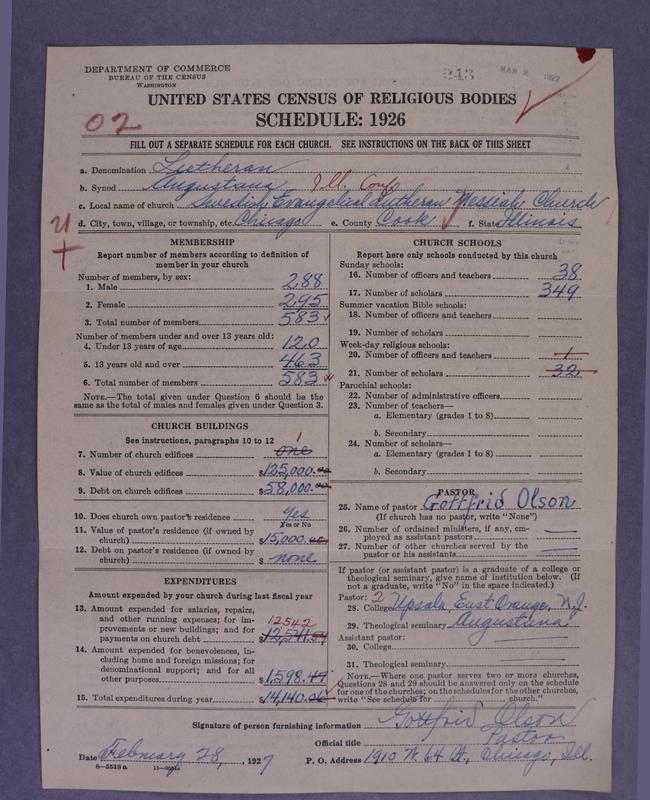 DEPARTMENT OF COMMERCE
BUREAU OF THE CENSUS
WASHINGTON
243
MAR 2 1927
UNITED STATES CENSUS OF RELIGIOUS BODIES
SCHEDULE: 1926
02
FILL OUT A SEPARATE SCHEDULE FOR EACH CHURCH. SEE INSTRUCTIONS ON THE BACK OF THIS SHEET
a. Denomination Lutheran
b. Synod Augustana Ill. Conf
c. Local name of church Swedish Evangelical Lutheran Messiah Church
d. City, town, village, or township, etc. Chicago e. County Cook f. State Illinois
MEMBERSHIP
Report number of members according to definition of
member in your church
Number of members, by sex:
1. Male 288
2. Female 295
3. Total number of members 583
Number of members under and over 13 years old:
4. Under 13 years of age 120
5. 13 years old and over 463
6. Total number of members 583
NOTE.—The total given under Question 6 should be the
same as the total of males and females given under Question 3.
CHURCH BUILDINGS
See instructions, paragraphs 10 to 12
1
7. Number of church edifices one
8. Value of church edifices $125,000.00
9. Debt on church edifices $58,000.00
10. Does church own pastor's residence Yes
Yes or No
11. Value of pastor's residence (if owned by
church) $15,000.00
12. Debt on pastor's residence (if owned by
church) $ none
EXPENDITURES
Amount expended by your church during last fiscal year
13. Amount expended for salaries, repairs,
and other running expenses; for im-
provements or new buildings; and for
payments on church debt 12542 $12,541.59
14. Amount expended for benevolences, in-
cluding home and foreign missions; for
denominational support; and for all
other purposes $1,598.47
15. Total expenditures during year $14,140.06
CHURCH SCHOOLS
Report here only schools conducted by this church
Sunday schools:
16. Number of officers and teachers 38
17. Number of scholars 349
Summer vacation Bible schools:
18. Number of officers and teachers
19. Number of scholars
Week-day religious schools:
20. Number of officers and teachers 1
21. Number of scholars 32
Parochial schools:
22. Number of administrative officers
23. Number of teachers—
a. Elementary (grades 1 to 8)
b. Secondary
24. Number of scholars—
a. Elementary (grades 1 to 8)
b. Secondary
PASTOR
25. Name of pastor Gottfrid Olson
(If church has no pastor, write "None")
26. Number of ordained ministers, if any, em-
ployed as assistant pastors
27. Number of other churches served by the
pastor or his assistants
If pastor (or assistant pastor) is a graduate of a college or
theological seminary, give name of institution below. (If
not a graduate, write "No" in the space indicated.)
Pastor: 2
28. College Upsala, East Orange, N.J.
29. Theological seminary Augustana
Assistant pastor:
30. College
31. Theological seminary
NOTE.—Where one pastor serves two or more churches,
Questions 28 and 29 should be answered only on the schedule
for one of the churches; on the schedules for the other churches,
write "See schedule for church."
Signature of person furnishing information Gottfrid Olson
Official title Pastor
Date February 28, 1927 P. O. Address 1910 W. 64 St., Chicago, Ill.
8—5518 a